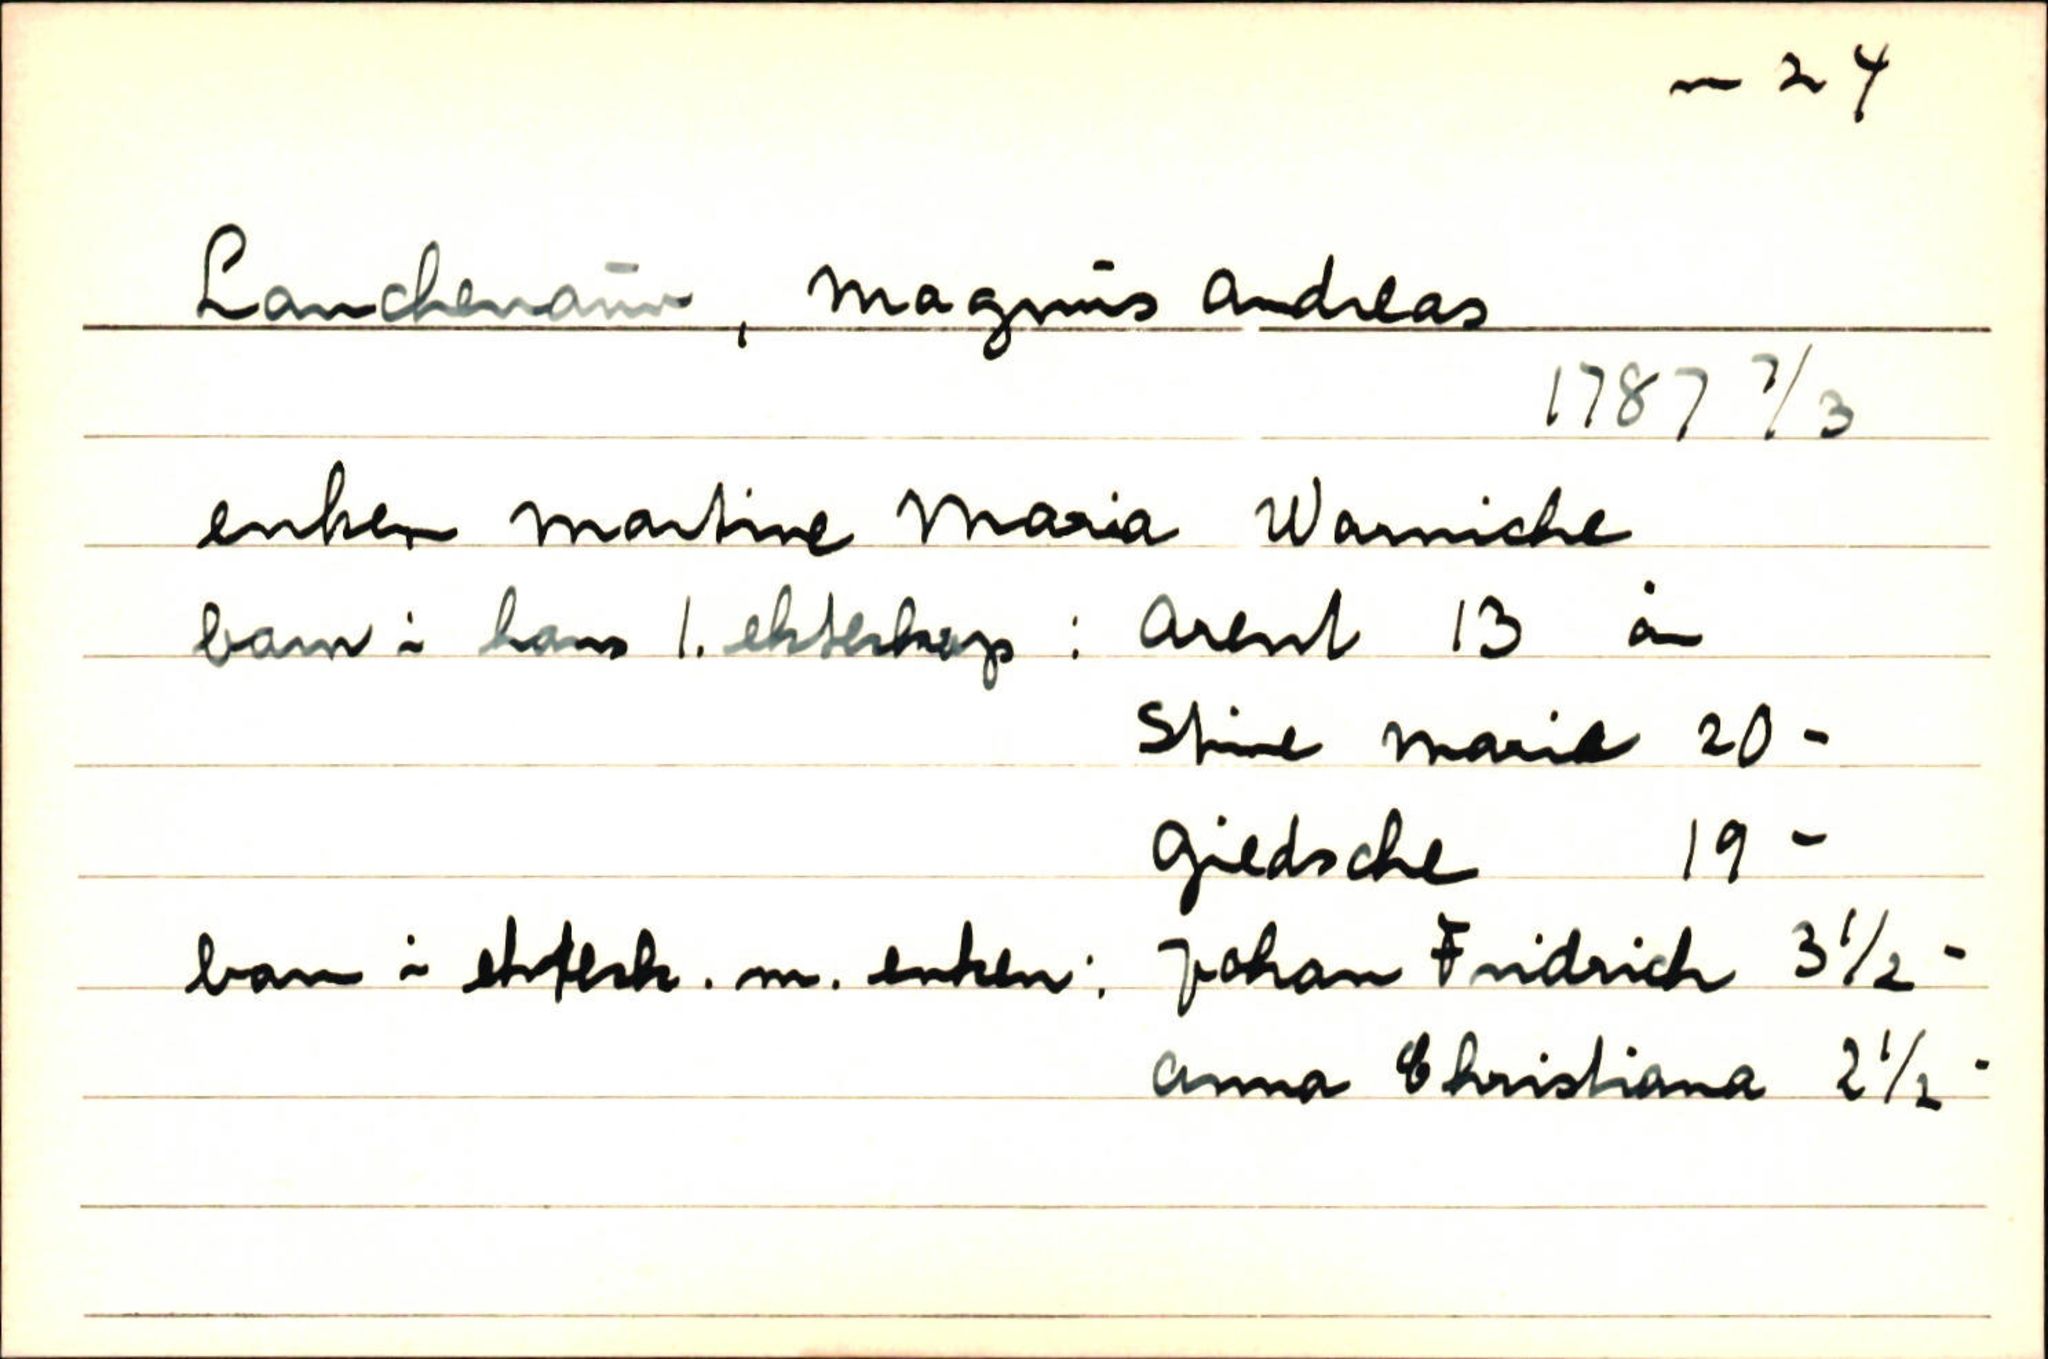 ~ 24
Lanchenaŭ, Magnus Andreas
1787 7/3
enken Martine Maria Warniche
barn i hans 1. ekteskap : Arent 13 år
Stine Marie 20 -
Giedsche 19 -
barn i ektesk. m. enken: Johan Fridrich 3 1/2 -
Anna Christiana 2 1/2 -